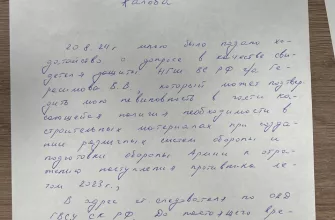 жалоба
20.8.24 г. мною было подано хо-
датайство о допросе в качестве сви-
детеля защиты НГШ ВС РФ г/а Ге-
расимова В.В., который может подтвер-
дить мою невиновность в части ка-
сающейся наличия необходимости в
строительных материалах при созда-
нии различных систем обороны и
подготовки обороны Армии к отра-
жению наступления противника ле-
том 2023 г.
В адрес ст. следователя по ОВД
ГВСУ СК РФ. До настоящего вре-